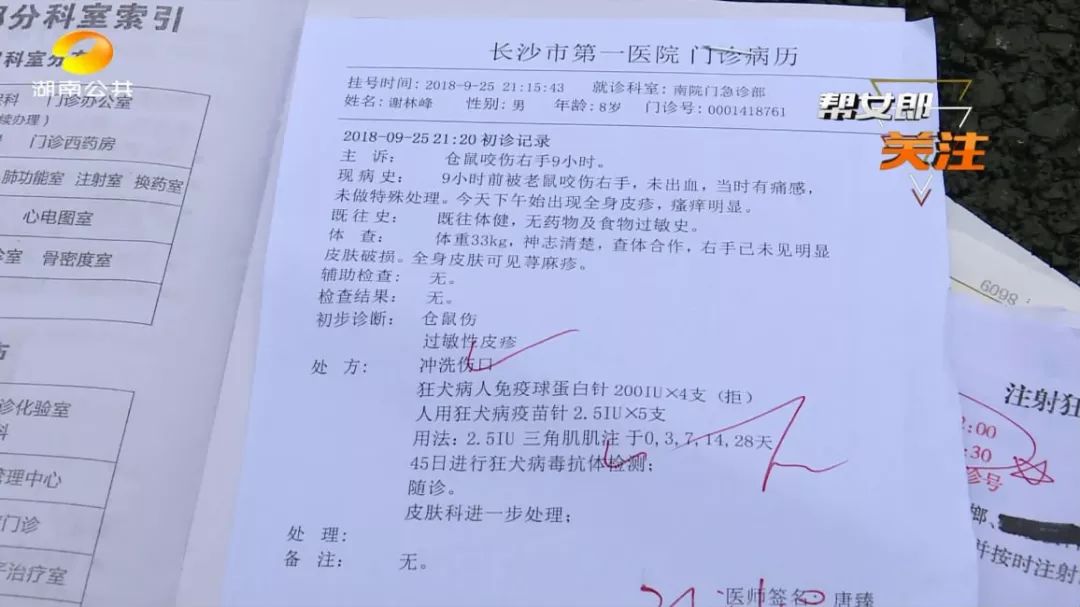 部分科室索引
湖南公共
门诊办公室
续办理）
门诊西药房
肺功能室 注射室 换药室
心电图室
骨密度室
诊化验室
科
管理中心
门诊
治疗室
长沙市第一医院 门诊病历
挂号时间: 2018-9-25 21:15:43 就诊科室: 南院门急诊部
姓名: 谢林峰 性别: 男 年龄: 8岁 门诊号: 0001418761
2018-09-25 21:20 初诊记录
主 诉: 仓鼠咬伤右手9小时。
现 病 史: 9小时前被老鼠咬伤右手，未出血，当时有痛感，
未做特殊处理。今天下午始出现全身皮疹，瘙痒明显。
既 往 史: 既往体健，无药物及食物过敏史。
体 查: 体重33kg，神志清楚，查体合作，右手已未见明显
皮肤破损。全身皮肤可见荨麻疹。
辅助检查: 无。
检查结果: 无。
初步诊断: 仓鼠伤
过敏性皮疹
处 方: 冲洗伤口
狂犬病人免疫球蛋白针 200IU×4支（拒）
人用狂犬病疫苗针 2.5IU×5支
用法: 2.5IU 三角肌肌注 于0,3,7,14,28天
45日进行狂犬病毒抗体检测;
随诊。
皮肤科进一步处理;
处 理:
备 注: 无。
医师签名: 唐臻
帮女郎
关注
6098
注射狂
:00
:30
诊号
并按时注射